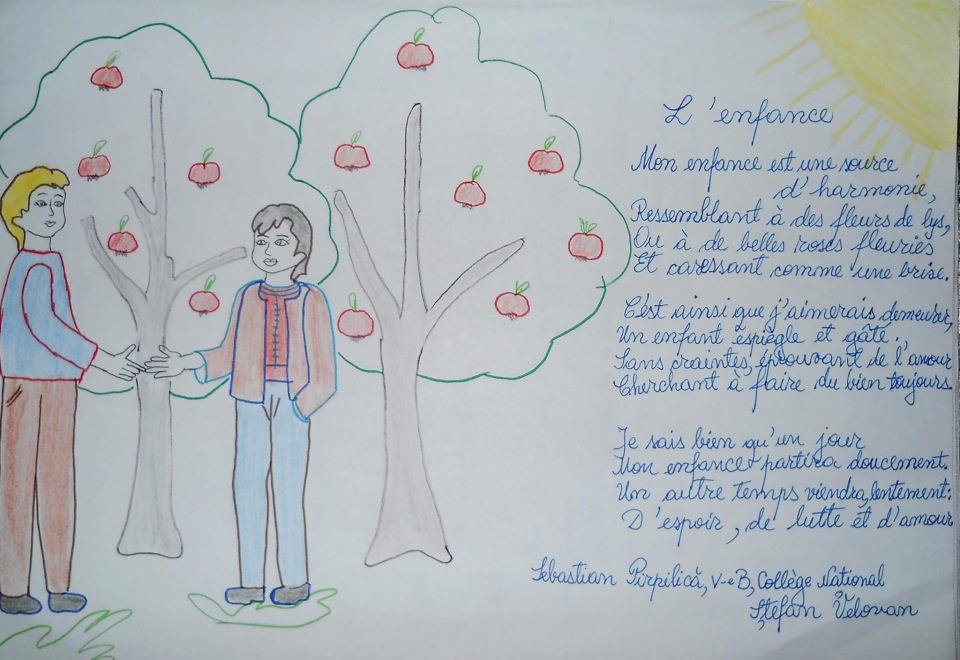 L'enfance
Mon enfance est une source
d'harmonie,
Ressemblant à des fleurs de lys,
Ou à de belles roses fleuries
Et caressant comme une brise.
C'est ainsi que j'aimerais demeurer,
Un enfant espiègle et gâté.,
Sans craintes, éprouvant de l'amour
Cherchant à faire du bien toujours.
Je sais bien qu'un jour
Mon enfance partira doucement.
Un autre temps viendra, lentement:
D'espoir, de lutte et d'amour
Sebastian Pirpilică, V-e B, Collège National
Ștefan Velovan